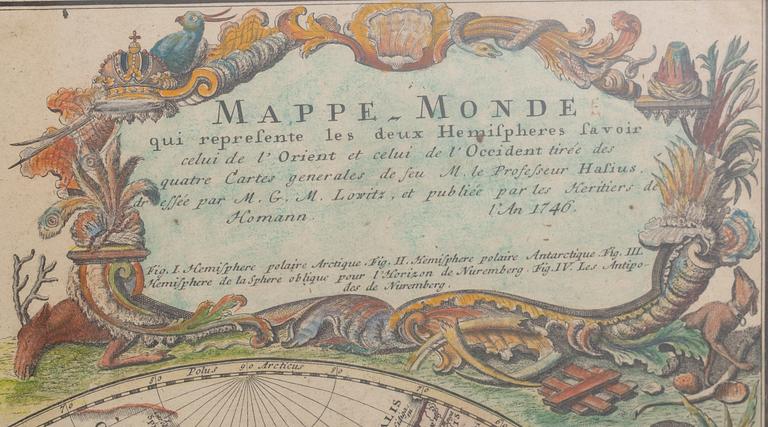 MAPPE-MONDE
qui repreſente les deux Hemiſpheres ſavoir
celui de l'Orient et celui de l'Occident tirée des
quatre Cartes generales de feu M. le Profeſſeur Haſius.
dreſſée par M. G. M. Lowitz, et publiée par les Heritiers de
Homann. l'An 1746.
Fig. I. Hemiſphere polaire Arctique. Fig. II. Hemiſphere polaire Antarctique. Fig. III.
Hemiſphere de la Sphere oblique pour l'Horizon de Nuremberg. Fig. IV. Les Antipo-
des de Nuremberg.
70 80 Polus 90 Arcticus 80 70